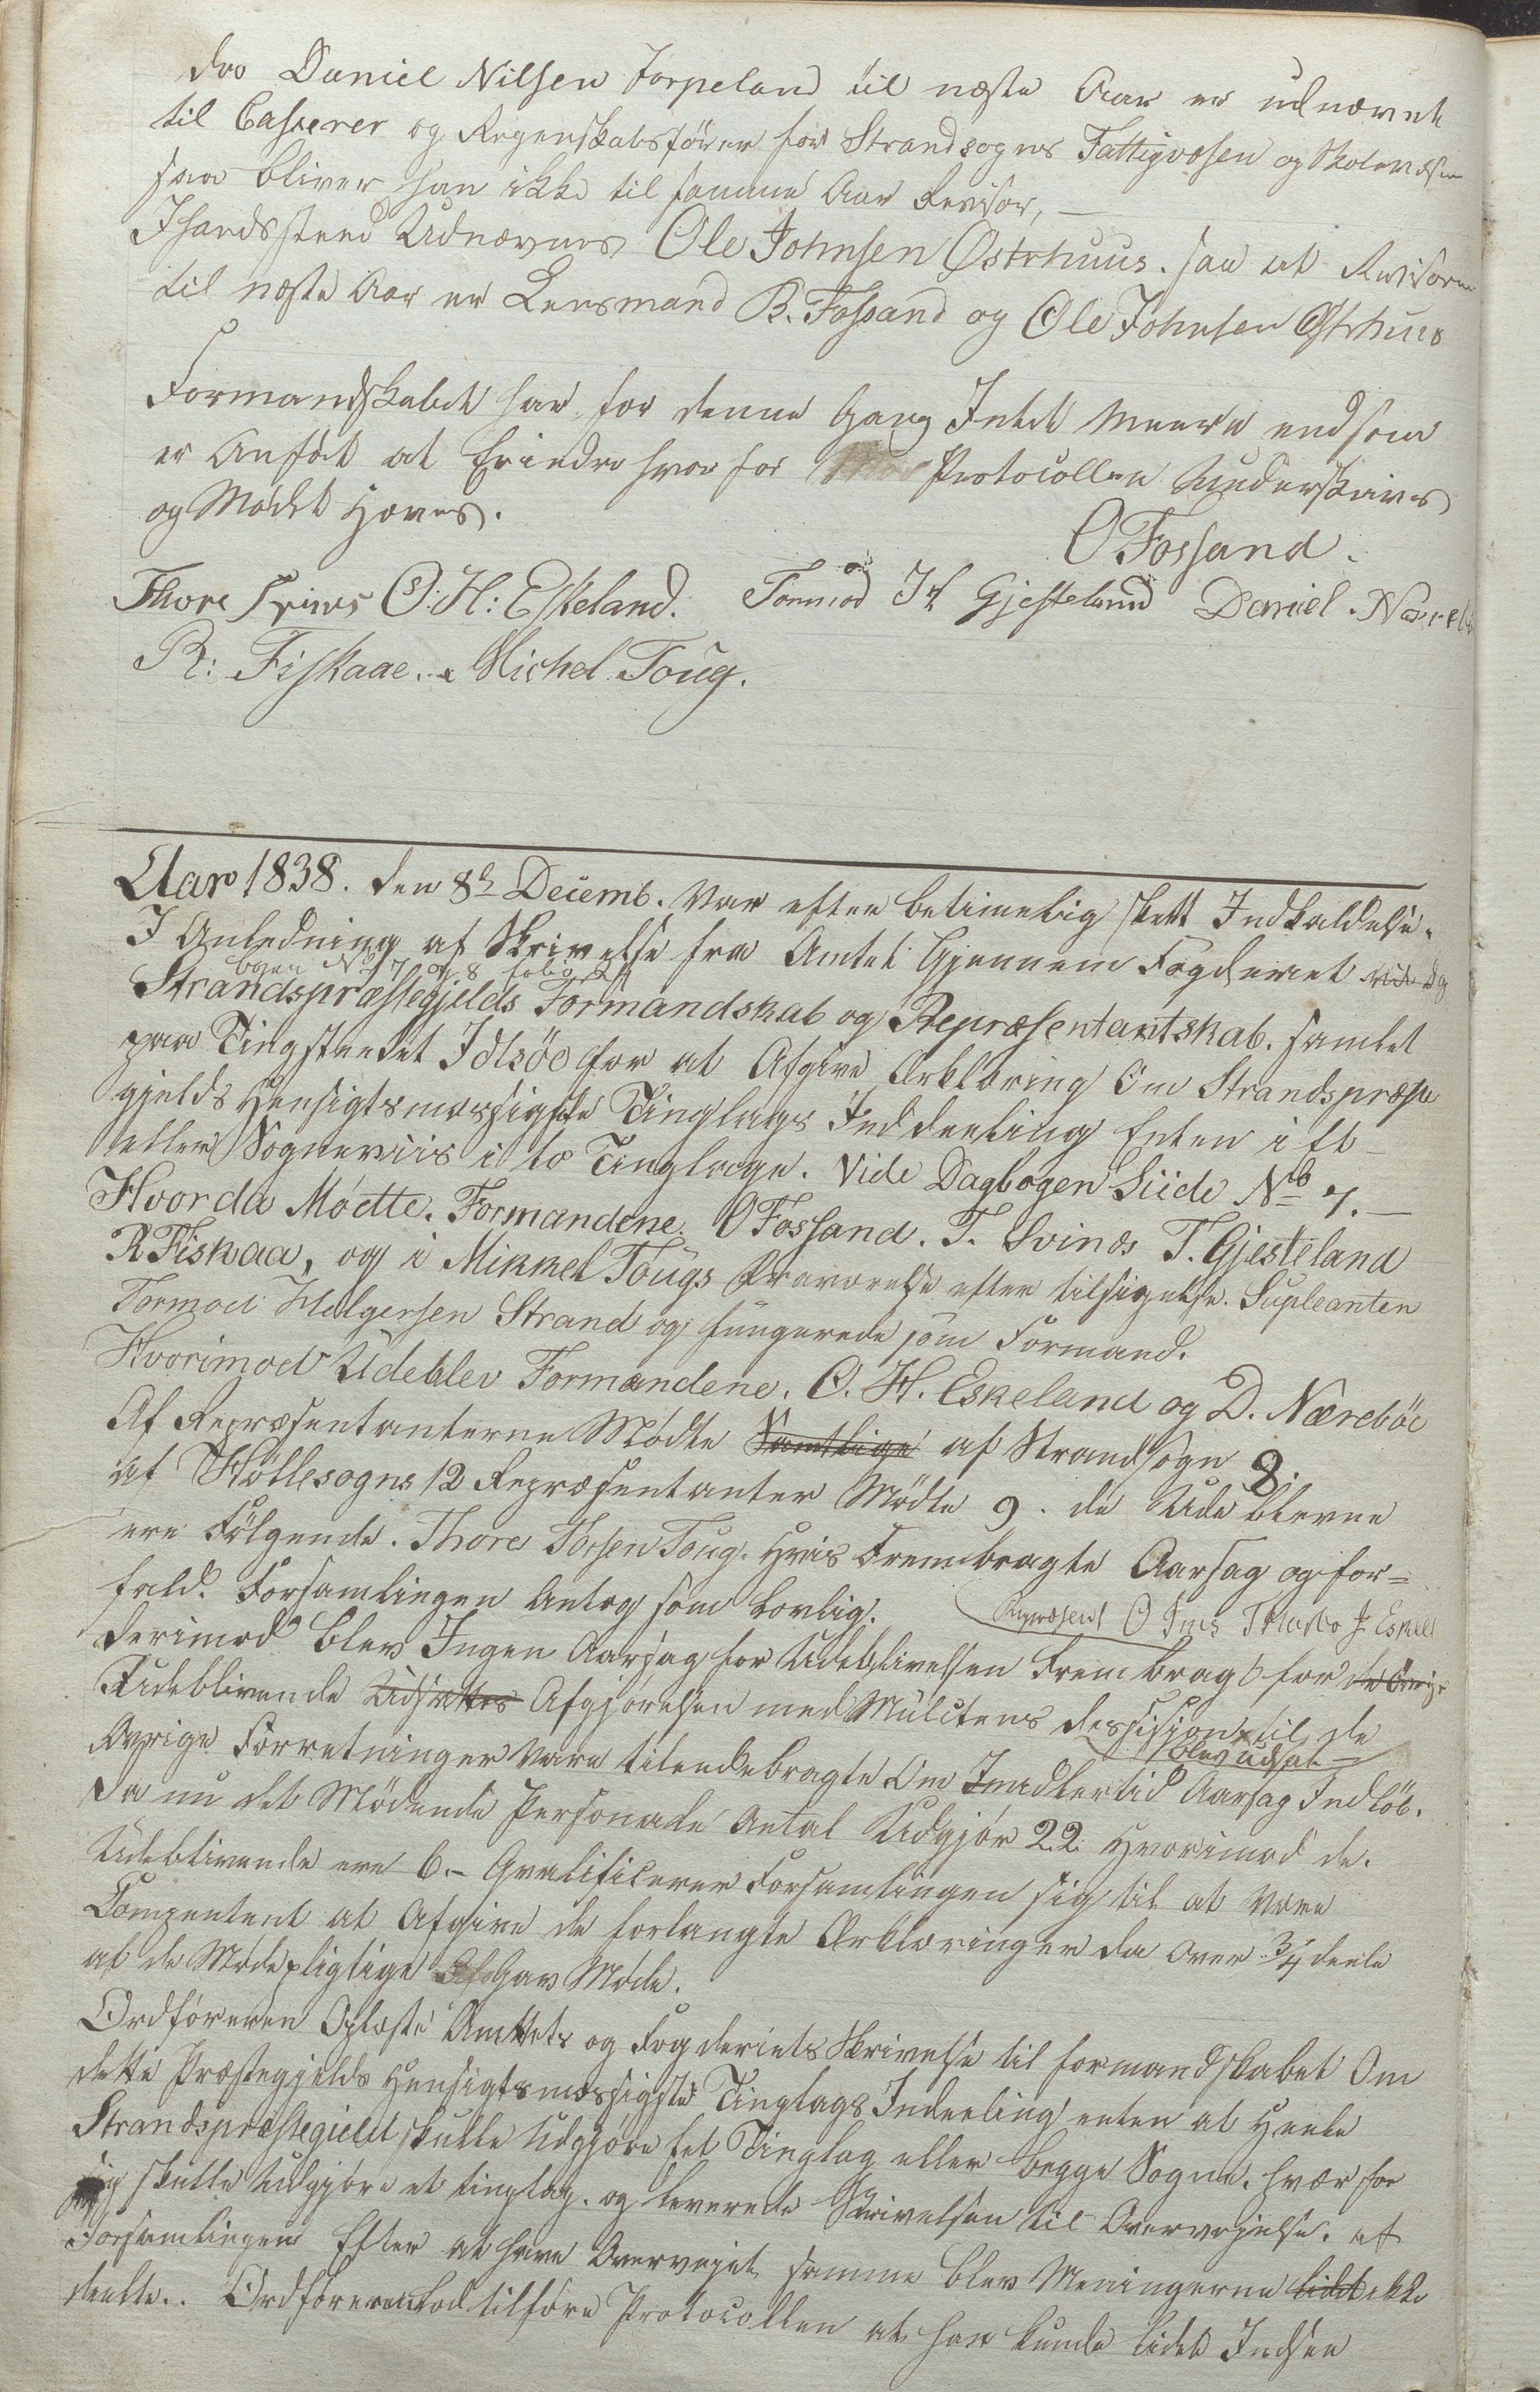 Daniel Nilsen Jorpeland til næste Aar er udnævnt
til Casserer og Regenskabsfører for Strandsogns Fattigvæsen og Skolevæsen
saa bliver han ikke til samme Aar Revisor, —
Ihandssteed Udnævnes Ole Johnsen Østrhuus. saa at Revisorer
til næste Aar er Lensmand B. Fossand og Ole Johnsen Østrhuus
Formandskabet har for denne Gang Intet meere end som
er Anført at Erindre hvor for Protocollen Underskrives
og Mødet Hæves.
O Fossand.
Thore Svines O: H: Eskeland. Tormod Gjesteland Daniel Nærebø
R: Fiskaae. Michel Toug.
Aar 1838. den 8de Decemb. Var efter betimelig skett Indkaldelse.
I Anledning af Skrivelse fra Amtet Gjennem Fogderiet vide Dg
bogen No 7 og 8 folio
Strandspræstegjelds Formandskab og Repræsentantskab. samlet
paa Tingstædet Idsøe for at Afgive Erklæring Om Strandspræste
gjelds Hensigtsmæssigste Tinglags Inddeeling Enten i Et
eller Sogneviis i to Tinglage. Vide Dagbogen Siide No 7. —
Hvor da Mødte. Formandene. O Fossand. T. Svines T. Gjesteland
R Fiskaa, og i Mikkel Tougs Fraværelse efter tilsigelse. Supleanten
Tormod Helgersen Strand og fungerede som Formand.
Hvorimod Udeblev Formandene. O. H. Eskeland og D. Nærebøe
Af Repræsentanterne Mødte Samtlige af Strandsogn 8.
af Høllesogns 12 Repræsentanter Mødte 9. de Ude blevne
ere Følgende. Thore Toug. Hvis Frembragte Aarsag og for=
fald. Forsamlingen Antog som Lovlig. Repræsent O T J Eskel
Derimod blev Ingen Aarsag for Udeblivelsen Frembragt for de Øvrige
Udeblivende Udsættes Afgjørelsen med Mulctens til de
blev udsat
Øvrige Forretninger vare tilendebragte Om Imidlertid Aarsag Indløb.
Da nu det Mødende Personale Antal Udgjør 22 Hvorimod de.
Udeblivende ere 6. – Qvalificerer Forsamlingen sig til at være
Competent at Afgive de forlangte Erklæringer da Over 3/4 deele
af de Mødepligtige Gav Møde.
Ordføreren Oplæste Amtets og Fogderiets Skrivelse til formandskabet Om
dette Præstegjelds Hensigtsmæssigste Tinglags Indeeling enten at Heele
Strandspræstegield skulle Udgjøre Eet Tinglag eller begge Sogne. hvær for
sig skulle Udgjøre et tinglag. og leverede Skrivelsen til Overvejelse. af
Forsamlingen Efter at have Overvejet samme blev Meningerne lidet ikke
deelte.. Ordføreren lod tilføre Protocollen at han kunde lidet Indsee